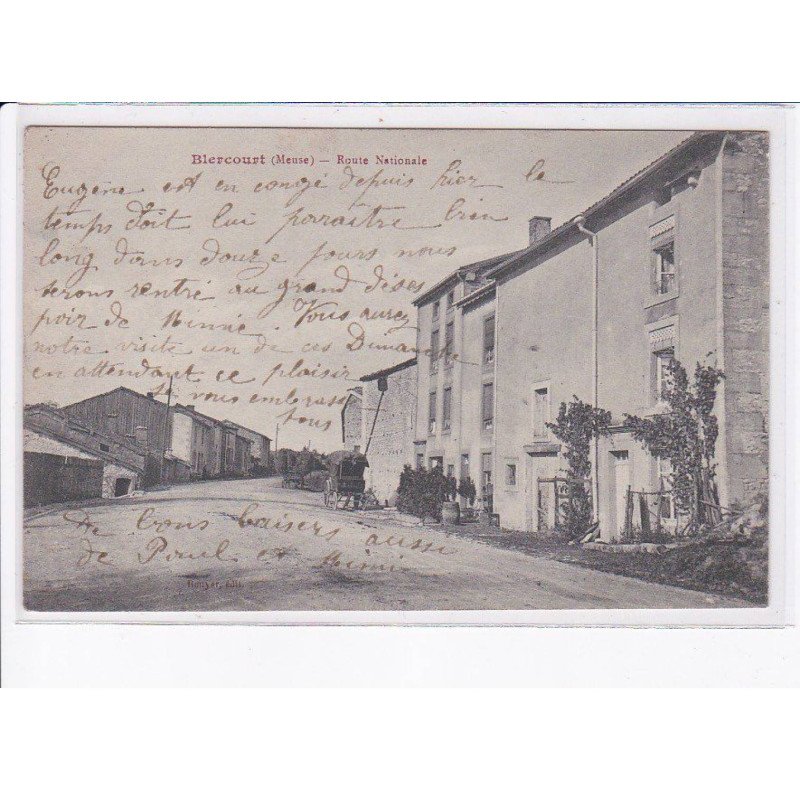 Blercourt (Meuse) — Route Nationale
Eugène est en congé depuis hier le
temps doit lui paraître bien
long dans douze jours nous
serons rentré au grand déses
poir de Minie. Vous aurez
notre visite un de ces Dimanche
en attendant ce plaisir
je vous embrasse
tous
de bons baisers aussi
de Paul et Mimi
édit.